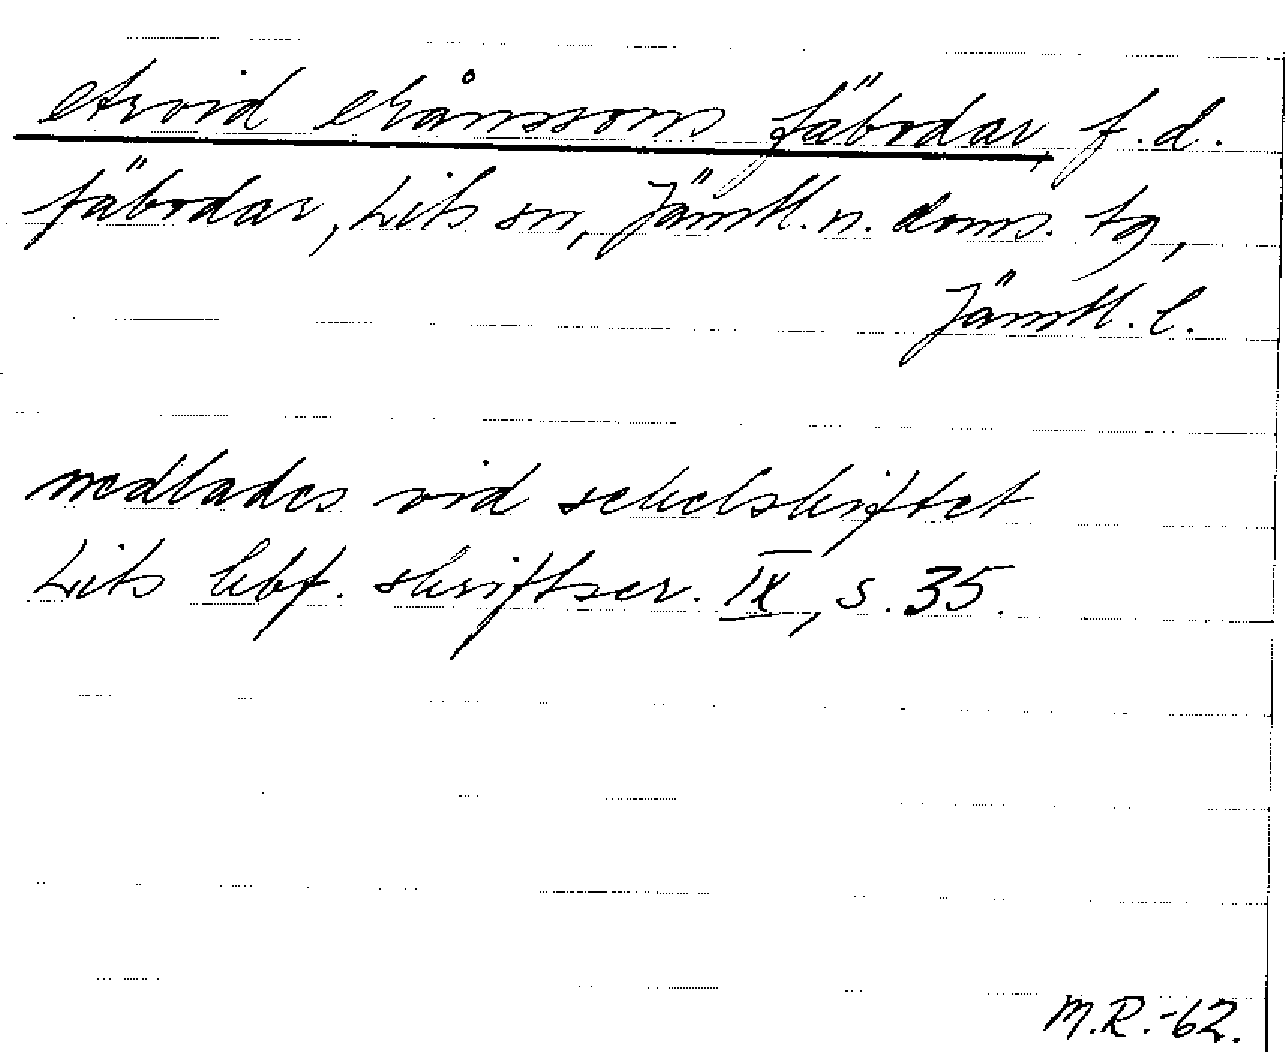 Arvid Månssons fäbodar, f.d.
fäbodar, Lits sn, Jämtl. n. doms. tg,
Jämtl. l.
nedlades vid sekelskiftet
Lits hbf. skriftser. IX, s. 35.
M.R.-62.